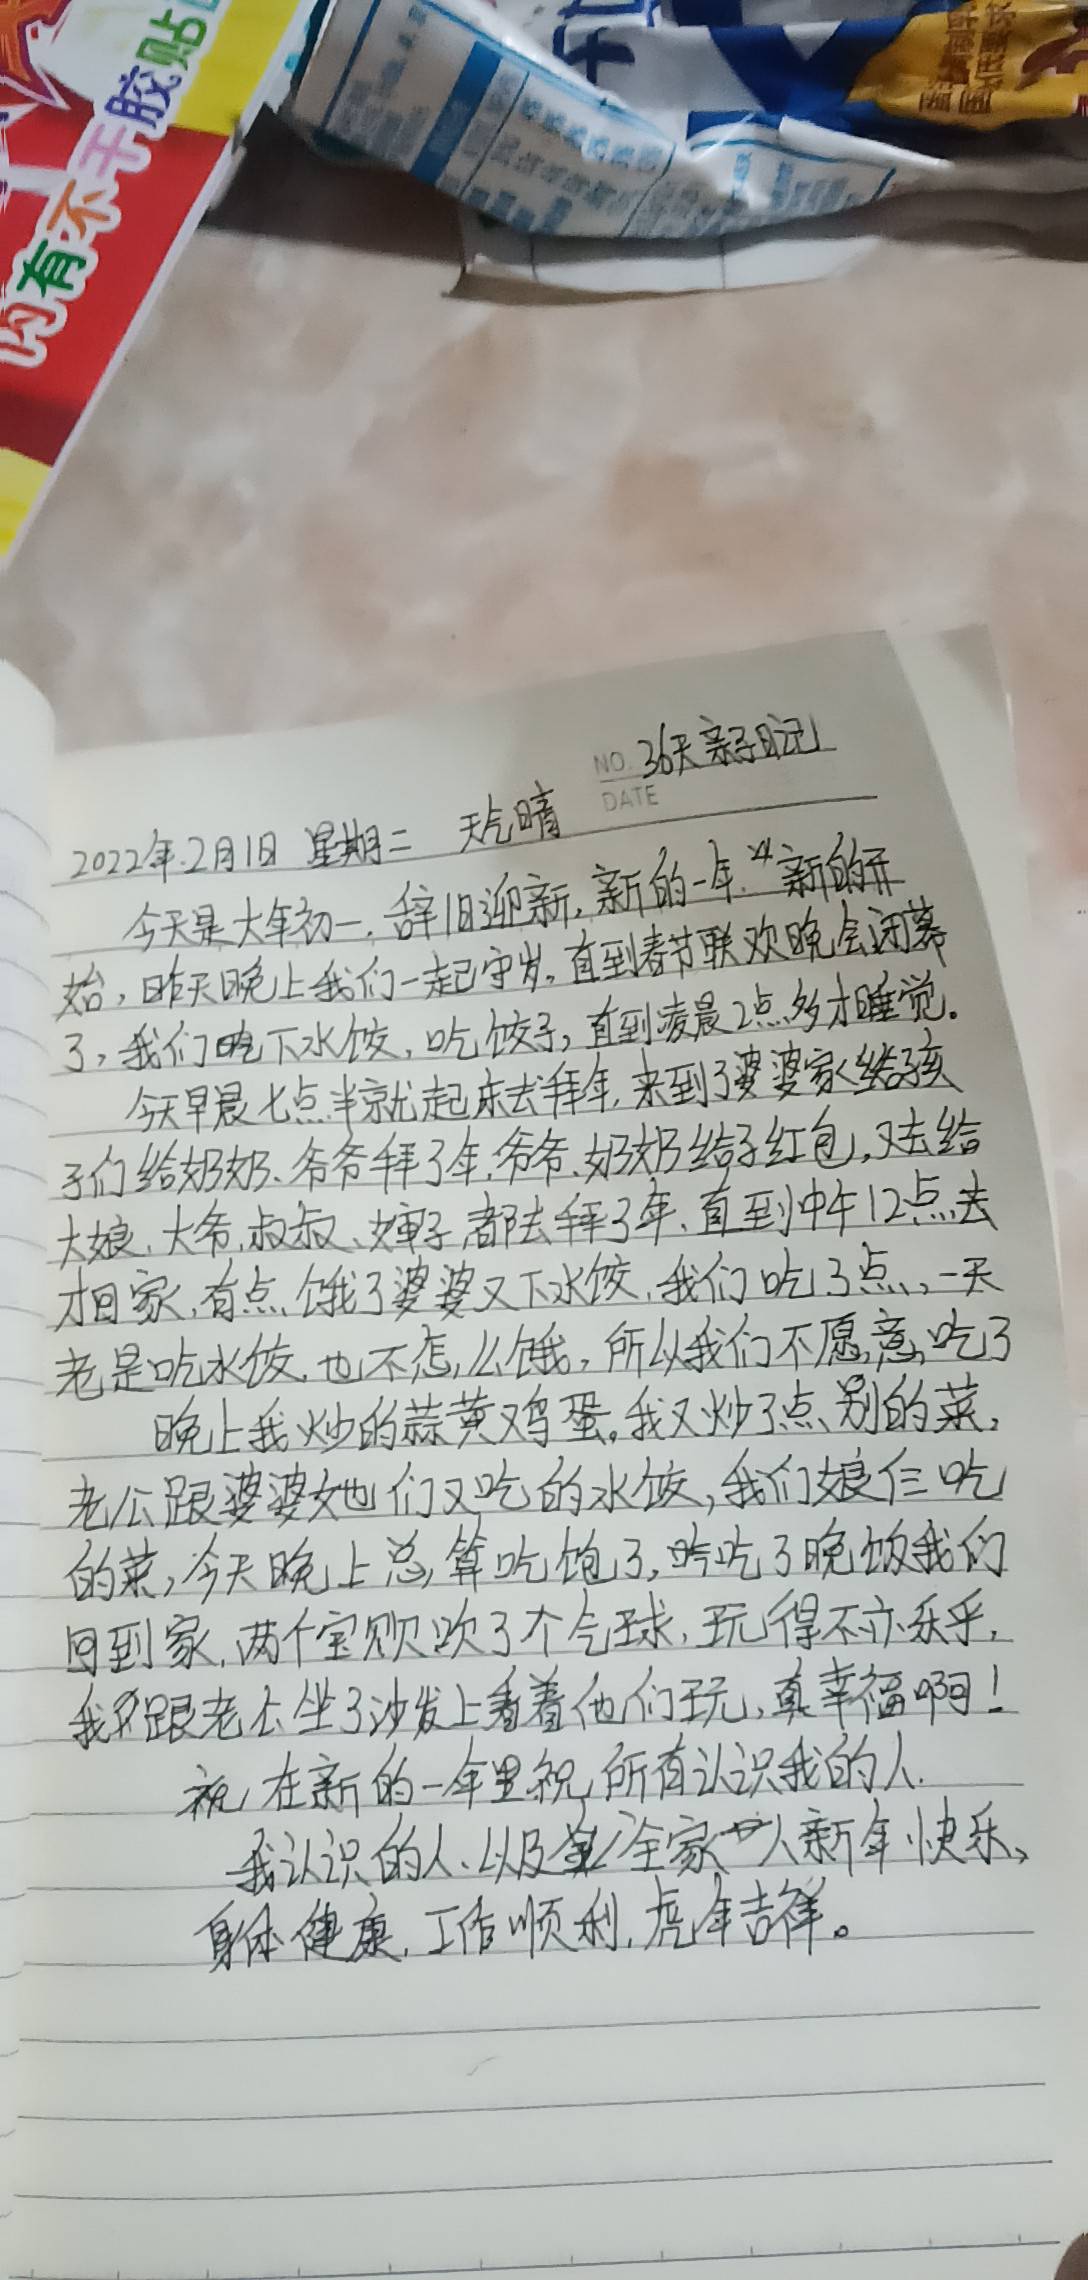 内有不干胶贴
NO. 36天亲子日记
DATE
2022年.2月1日 星期二 天气晴
今天是大年初一,辞旧迎新,新的一年.新的开
始,昨天晚上我们一起守岁,直到春节联欢晚会闭幕
了,我们吃下水饺,吃饺子,直到凌晨2点多才睡觉。
今天早晨七点半就起床去拜年,来到了婆婆家给孩
子们给奶奶、爷爷拜了年,爷爷、奶奶给了红包,又去给
大娘、大爷,叔叔、婶子,都去拜了年、直到中午12点去
才回家,有点饿了婆婆又下水饺,我们吃了点,一天
老是吃水饺,也不怎么饿,所以我们不愿意吃了
晚上我炒的蒜黄鸡蛋。我又炒了点别的菜,
老公跟婆婆她们又吃的水饺,我们娘仨吃
的菜,今天晚上总算吃饱了,吃了晚饭我们
回到家,两个宝贝吹了个气球,玩得不亦乐乎,
我跟老公坐了沙发上看着他们玩,真幸福啊!
祝在新的一年里祝所有认识我的人.
我认识的人、以及全家人新年快乐、
身体健康,工作顺利,虎年吉祥。